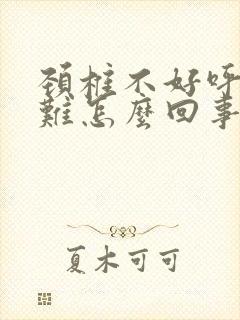 頚椎不好呼
難怎麼回事
夏木可可